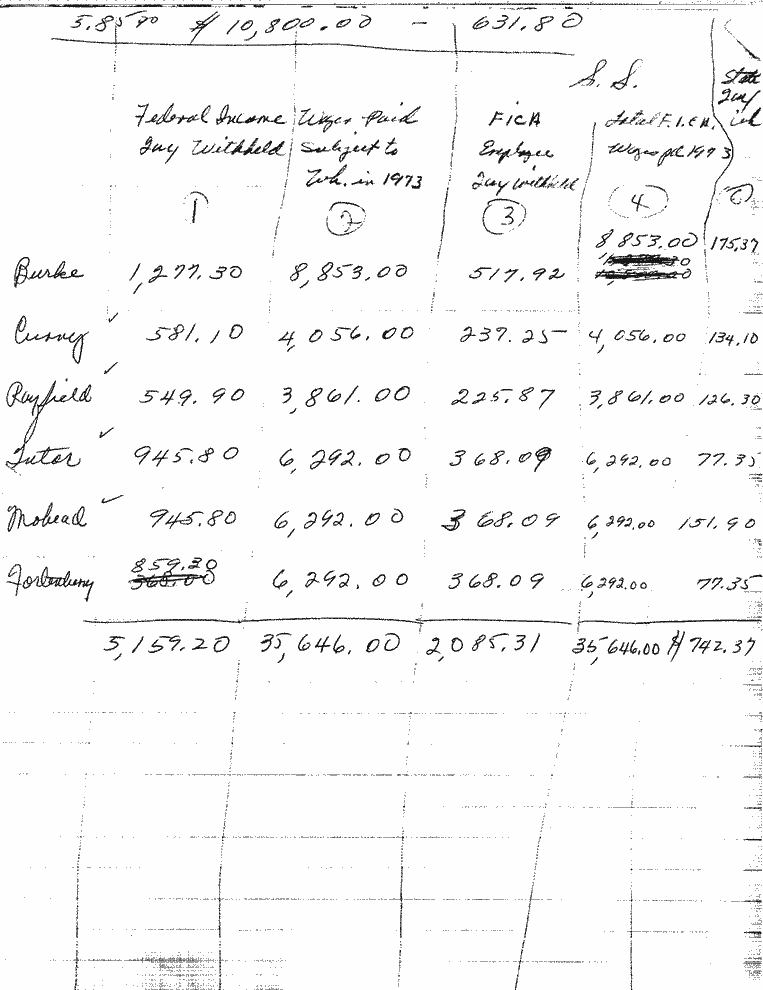 5.85% $10,800.00 - 631.80
S. S.
Federal Income Wages Paid FICA Total F.I.C.A. State
Tax Withheld Subject to Employee Wages pd 1973 Tax/
Wh. in 1973 Tax Withheld wh
1 2 3 4
8 853.00 175.37
Burke 1,277.30 8,853.00 517.92
Curney 581.10 4,056.00 237.25 4,056.00 134.10
Rayfield 549.90 3,861.00 225.87 3,861.00 126.30
Tutor 945.80 6,292.00 368.09 6,292.00 77.35
Mohead 945.80 6,292.00 368.09 6,292.00 151.90
859.30
Fortenberry 368.00 6,292.00 368.09 6,292.00 77.35
5,159.20 35,646.00 2,085.31 35,646.00 $742.37